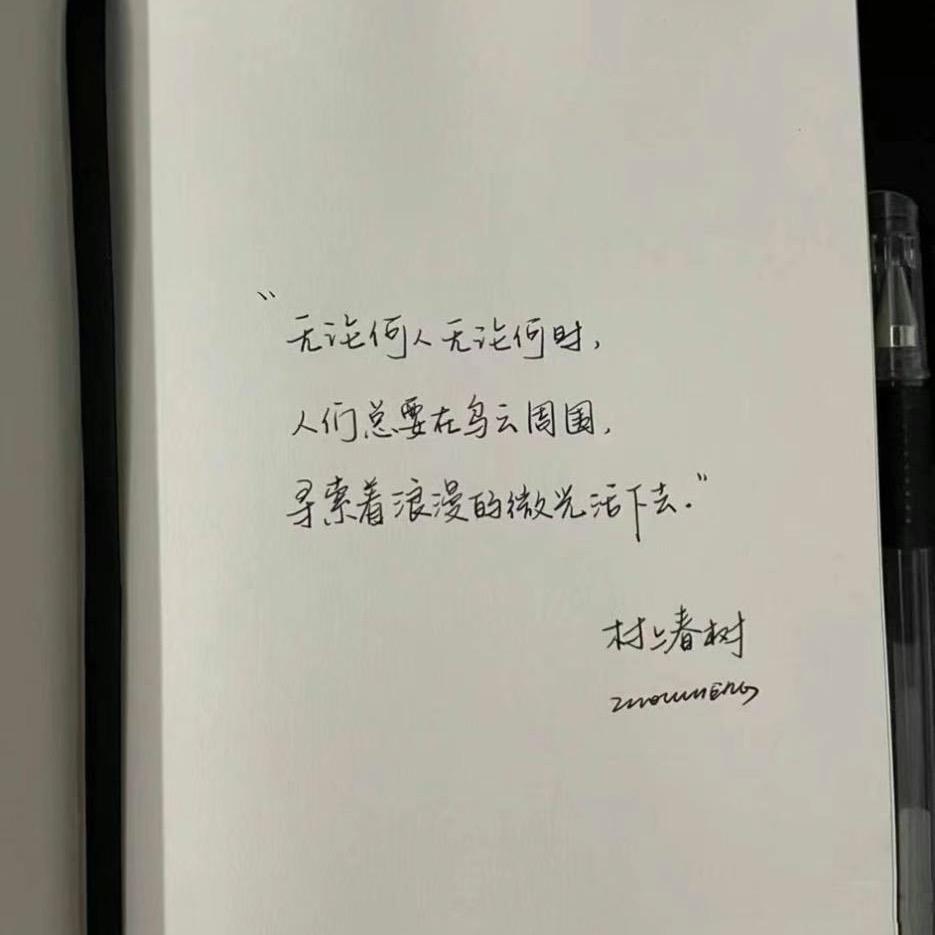 “无论何人无论何时,
人们总要在乌云周围,
寻索着浪漫的微光活下去.”
村上春树